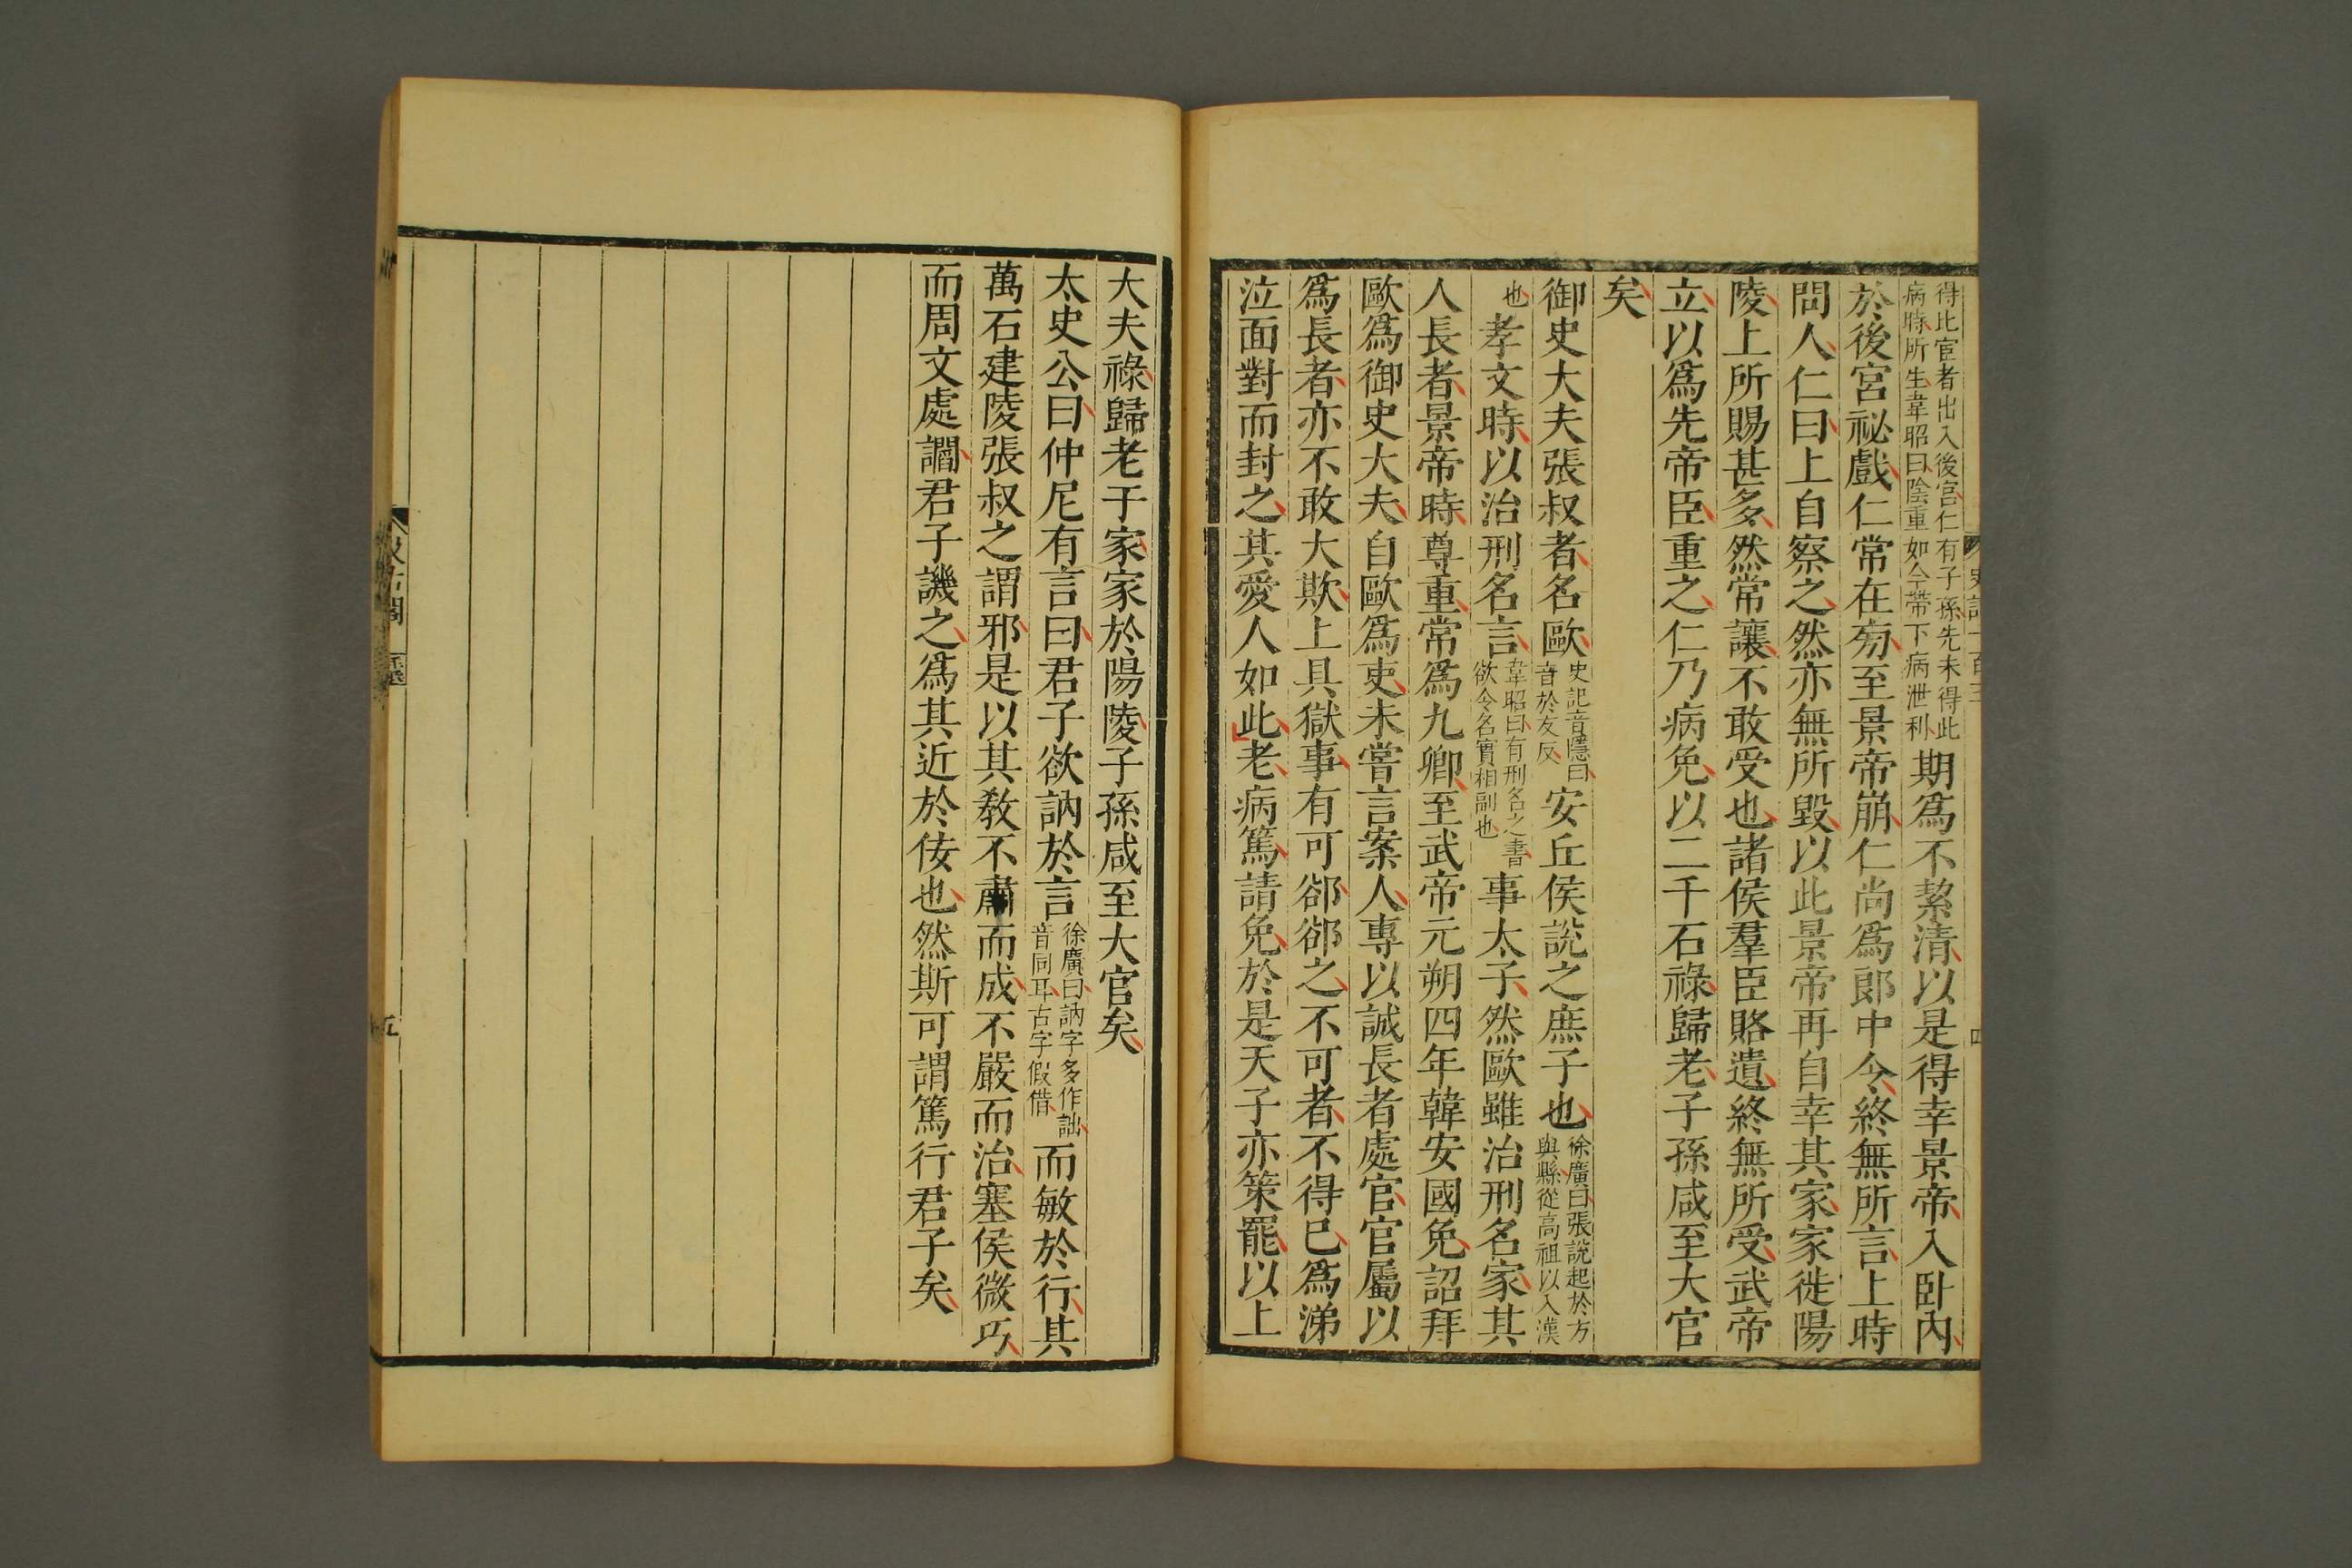 得比宦者出入後宮仁有子孫先未得此
病時所生韋昭曰陰重如今帶下病泄利
期爲不絜清以是得幸景帝入臥內
於後宮祕戲仁常在旁至景帝崩仁尚爲郎中令終無所言上時
問人仁曰上自察之然亦無所毀以此景帝再自幸其家家徙陽
陵上所賜甚多然常讓不敢受也諸侯羣臣賂遺終無所受武帝
立以爲先帝臣重之仁乃病免以二千石祿歸老子孫咸至大官
矣
御史大夫張叔者名歐
史記音隱曰
音於友反
安丘侯說之庶子也
徐廣曰張說起於方
與縣從高祖以入漢
也
孝文時以治刑名言
韋昭曰有刑名之書
欲令名實相副也
事太子然歐雖治刑名家其
人長者景帝時尊重常爲九卿至武帝元朔四年韓安國免詔拜
歐爲御史大夫自歐爲吏未嘗言案人專以誠長者處官官屬以
爲長者亦不敢大欺上具獄事有可卻卻之不可者不得已爲涕
泣面對而封之其愛人如此老病篤請免於是天子亦策罷以上
大夫祿歸老于家家於陽陵子孫咸至大官矣
太史公曰仲尼有言曰君子欲訥於言
徐廣曰訥字多作詘
音同耳古字假借
而敏於行其
萬石建陵張叔之謂邪是以其敎不肅而成不嚴而治塞侯微巧
而周文處讇君子譏之爲其近於佞也然斯可謂篤行君子矣
五
四